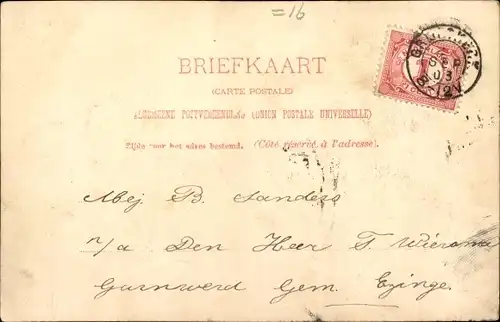 =16
BRIEFKAART
(CARTE POSTALE)
ALGEMEENE POSTVEREENIGING (UNION POSTALE UNIVERSELLE)
Zijde voor het adres bestemd. (Côté réservé à l'adresse).
SEP
03
8-12V
Mej B. Sanders
p/a Den Heer T. Wiersma
Garnwerd Gem. Ezinge.